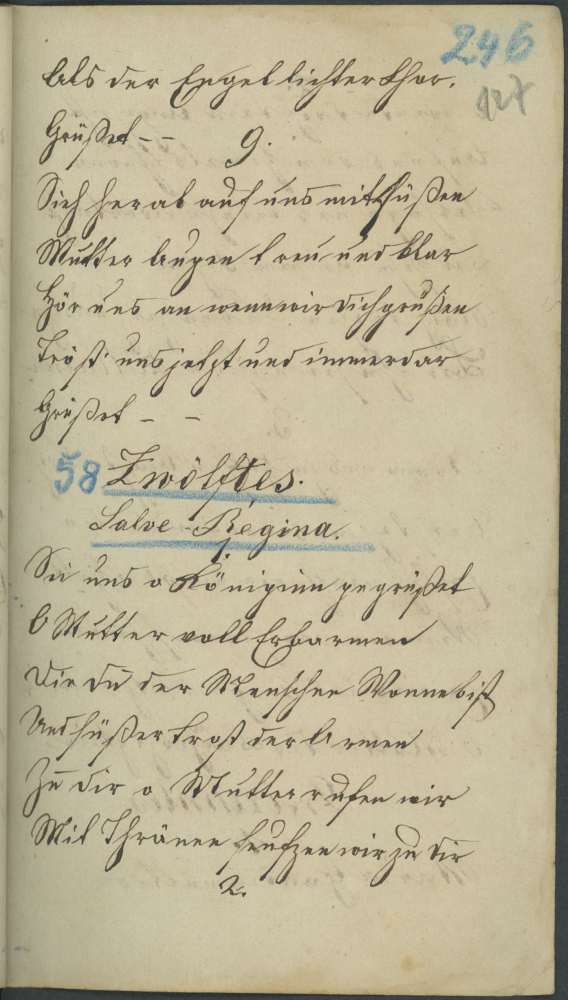 246
127
Als der Engel lichter Chor.
Grüßet - -
9.
Sieh herab auf uns mit süßen
Mutter Augen treu und klar
Hör uns an wenn wir dich grüßen
Tröst' uns jetzt und immerdar
Grüßet - -
58 Zwölftes.
Salve Regina.
Sei uns o Königinn gegrüßet
O Mutter voll Erbarmen
Die du der Menschen Wonne bist
Und süßer Trost der Armen
Zu dir o Mutter rufen wir
Mit Thränen seufzen wir zu dir
2.